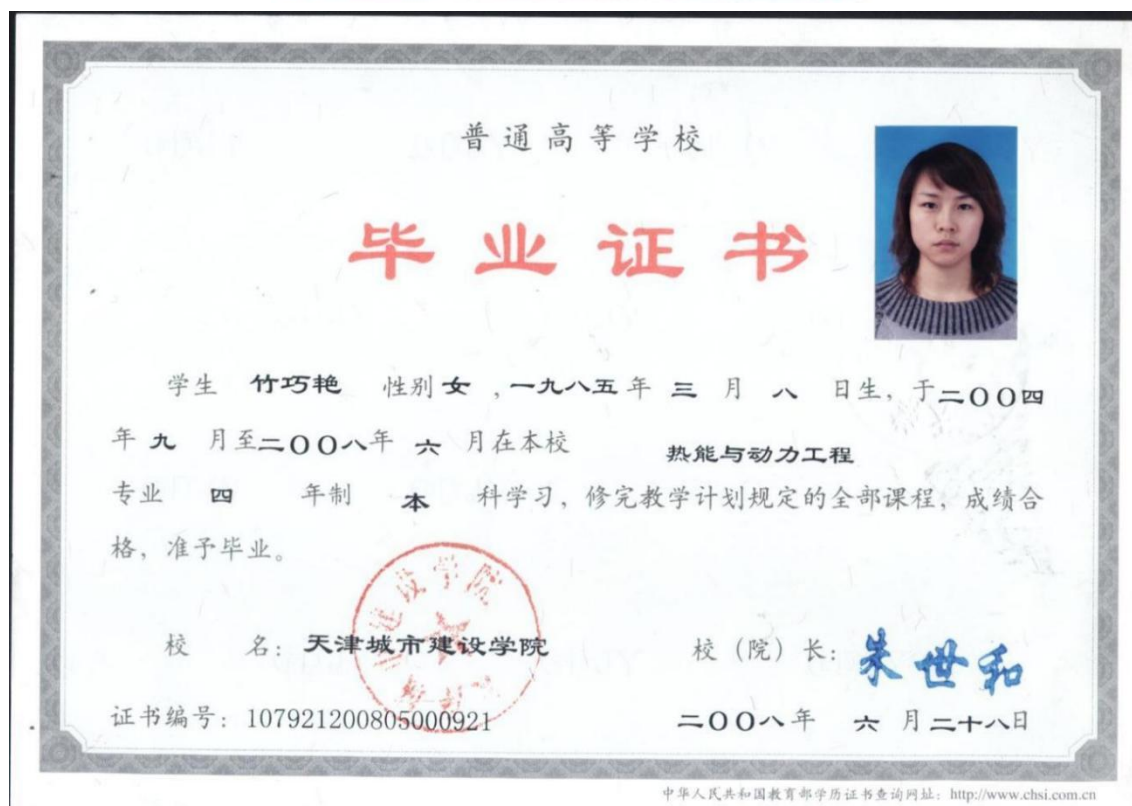 普通高等学校
毕业证书
学生 竹巧艳 性别女,一九八五年 三 月 八 日生,于二〇〇四
年 九 月至二〇〇八年 六 月在本校 热能与动力工程
专业 四 年制 本 科学习,修完教学计划规定的全部课程,成绩合
格,准予毕业。
校 名:天津城市建设学院 校(院)长:朱世和
证书编号:107921200805000921 二〇〇八年 六 月二十八日
中华人民共和国教育部学历证书查询网址:http://www.chsi.com.cn